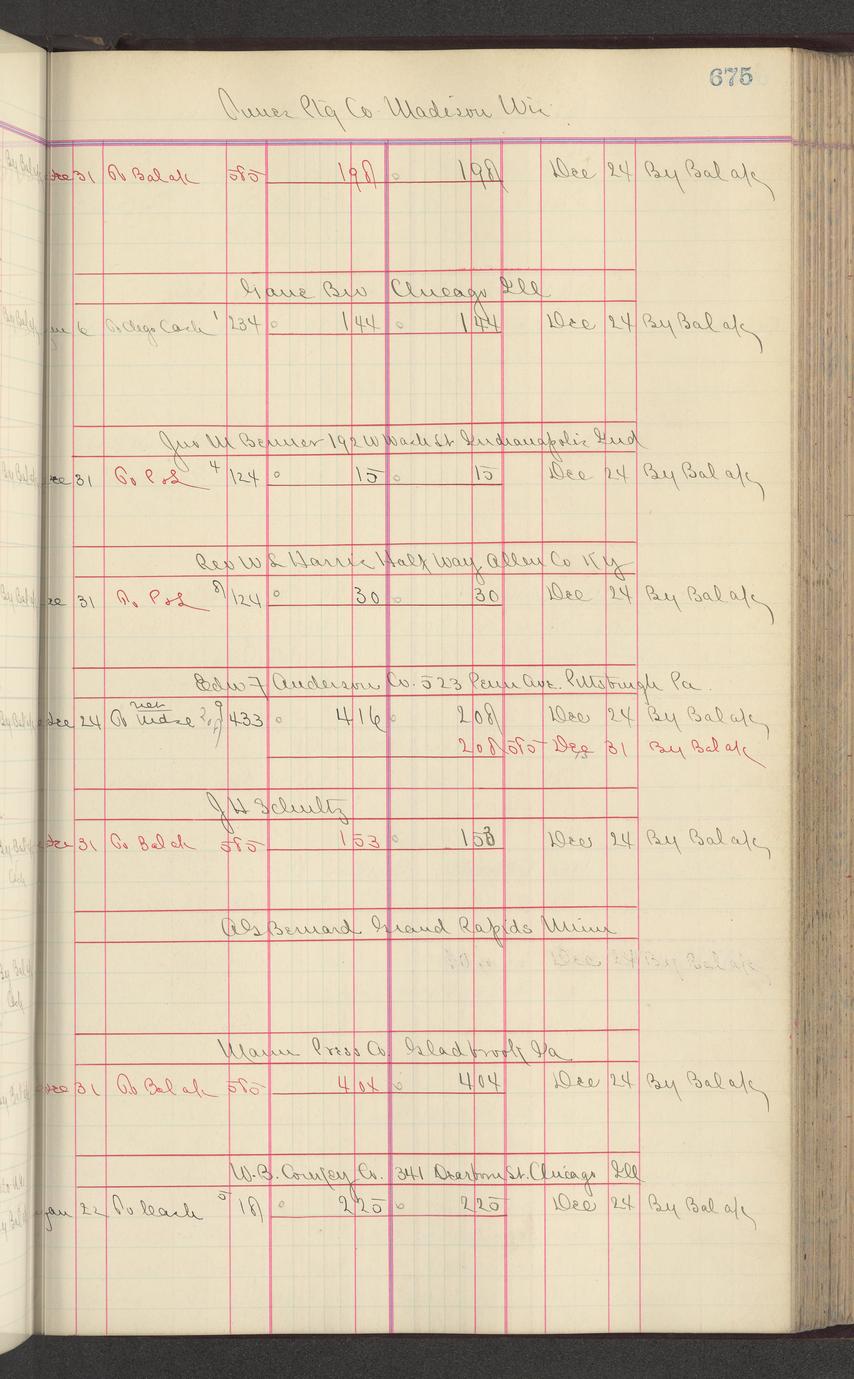 675
Ptg Co Madison Wis
Dec 31 To Bal a/c 585 198 198 Dec 24 By Bal a/c
Bro Chicago Ill
6 Cash 1 234 144 144 Dec 24 By Bal a/c
Jno M Benner 192 W Wash St Indianapolis Ind
Dec 31 To P & L 4 124 15 15 Dec 24 By Bal a/c
Rev W L Harris Half Way Allen Co Ky
Dec 31 To P & L 8 124 30 30 Dec 24 By Bal a/c
Edw F Anderson Co. 523 Penn Ave. Pittsburgh Pa.
Dec 24 To Mdse 433 416 208 Dec 24 By Bal a/c
208 585 Dec 31 By Bal a/c
J H Schultz
Dec 31 To Bal a/c 585 153 153 Dec 24 By Bal a/c
A G Bernard Grand Rapids Minn
Dec 24 By Bal a/c
Mann Press Co. Gladbrook Ia
Dec 31 To Bal a/c 585 404 404 Dec 24 By Bal a/c
W. B. Conkey Co. 341 Dearborn St. Chicago Ill
Jan 22 To Cash 5 18 225 225 Dec 24 By Bal a/c